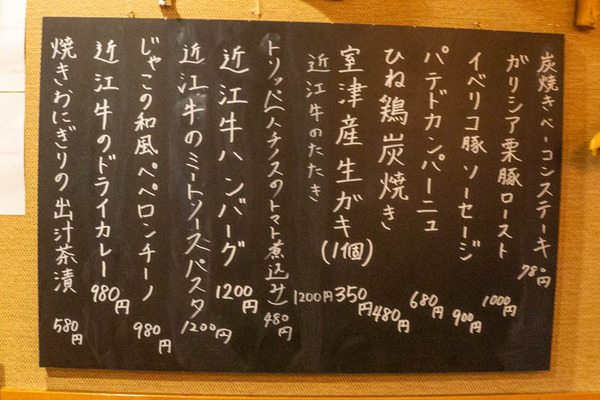 炭焼きベーコンステーキ 780円
ガリシア栗豚ロースト 1000円
イベリコ豚ソーセージ 900円
パテドカンパーニュ 680円
ひね鶏炭焼き 480円
室津産生ガキ(1個) 350円
近江牛のたたき 1200円
トリッパ(ハチノスのトマト煮込み) 480円
近江牛ハンバーグ 1200円
近江牛のミートソースパスタ 1200円
じゃこの和風ペペロンチーノ 980円
近江牛のドライカレー 980円
焼きおにぎりの出汁茶漬 580円